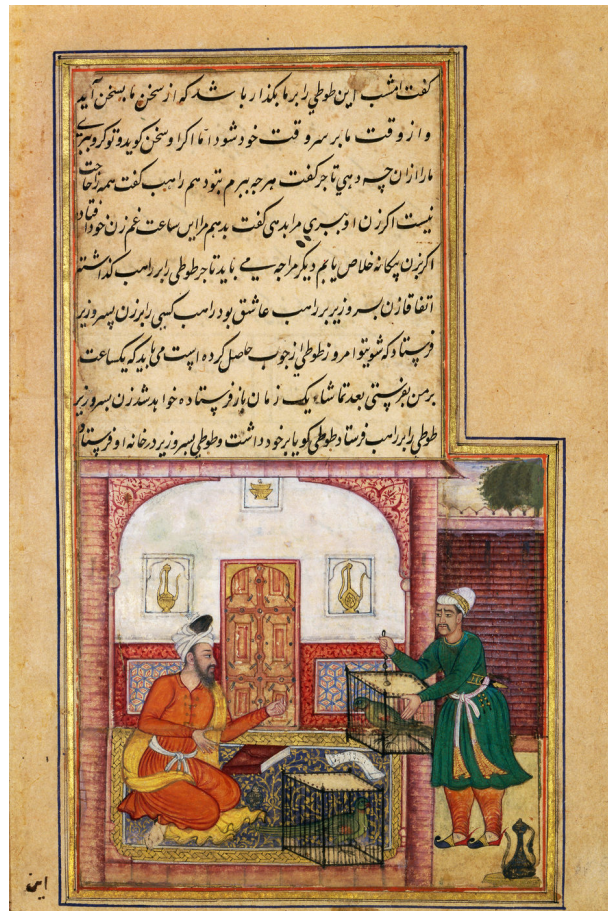 گفت امشب این طوطی را بر ما بگذار باشد که از سخن ما بسخن آید
و از وقت ما بر سر وقت خود شود اما اگر او سخن گوید و تو گرو ببری
ما را ازان چه دهی تاجر گفت هرچه ببرم بتو دهم راهب گفت همه را حاجت
نیست اگر زن او ببری مرا بدهی گفت بدهم مرا این ساعت غم زن خود افتاد
اگر زن بیکانه خلاص یابم دیگر مرا چه می باید تاجر طوطی را بر راهب گذاشت
اتفاقا زن پسر وزیر بر راهب عاشق بود راهب کسی را بر زن پسر وزیر
فرستاد که شوی تو امروز طوطی از چوب حاصل کرده است می باید که یکساعت
بر من بفرستی بعد تماشا یک زمان باز فرستاده خواهد شد زن پسر وزیر
طوطی را بر راهب فرستاد طوطی گویا بر خود داشت و طوطی پسر وزیر در خانه او فرستاد
این